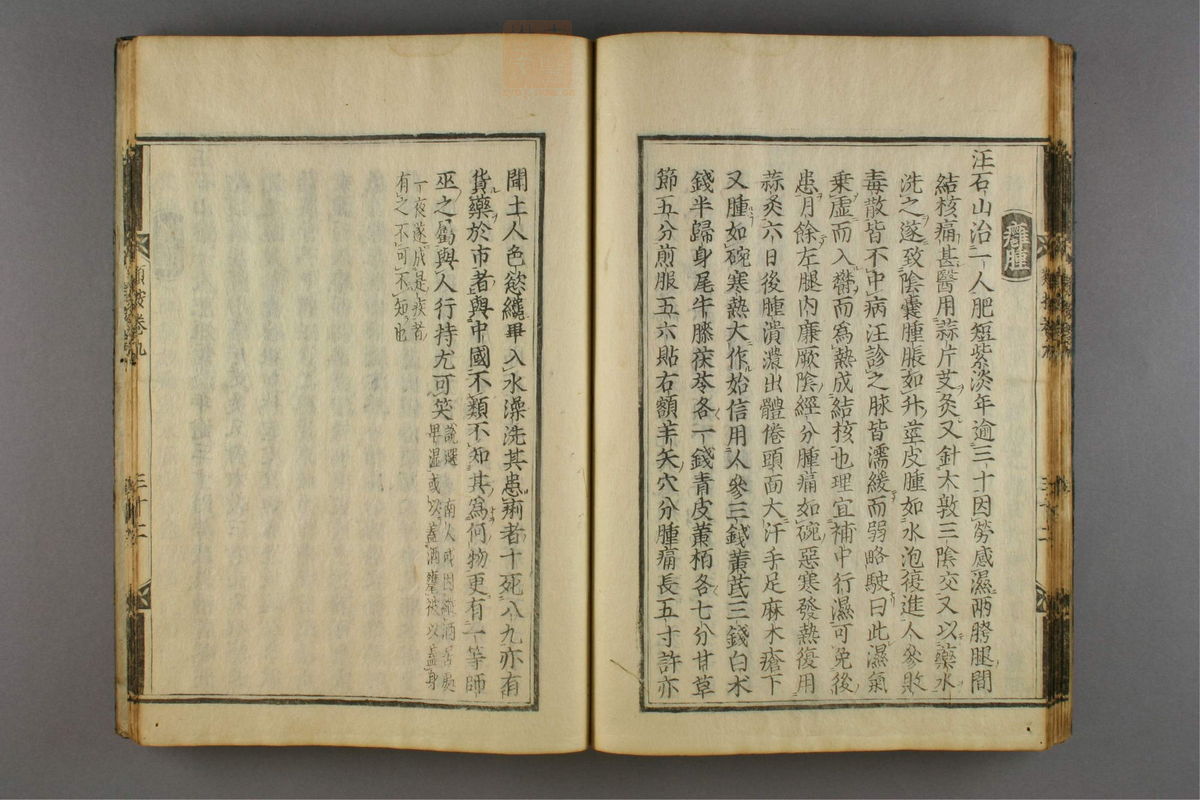 癰腫
汪石山治一人肥短紫淡年逾三十因勞感濕兩胯腿間
結核痛甚醫用蒜片艾灸又針大敦三陰交又以藥水
洗之遂致陰囊腫脹如升莖皮腫如水泡復進人參敗
毒散皆不中病汪診之脉皆濡緩而弱略駛曰此濕氣
乗虚而入欎而爲熱成結核也理宜補中行濕可免後
患月餘左腿內廉厥陰經分腫痛如碗惡寒發熱復用
蒜灸六日後腫潰濃出體倦頭面大汗手足麻木瘡下
又腫如碗寒熱大作始信用人參三錢黄芪三錢白朮
錢半歸身尾牛膝茯苓各一錢青皮黄栢各七分甘草
節五分煎服五六貼右額羊矢穴分腫痛長五寸許亦
類按卷九
三十二
聞土人色慾纔畢入水澡洗其患痢者十死八九亦有
貨藥於市者與中國不類不知其爲何物更有一等師
巫之屬與人行持尤可笑
南人或因
酒
畢濕或以蓋酒甕被以蓋身
一夜遂成是疾者
有之不可不知也